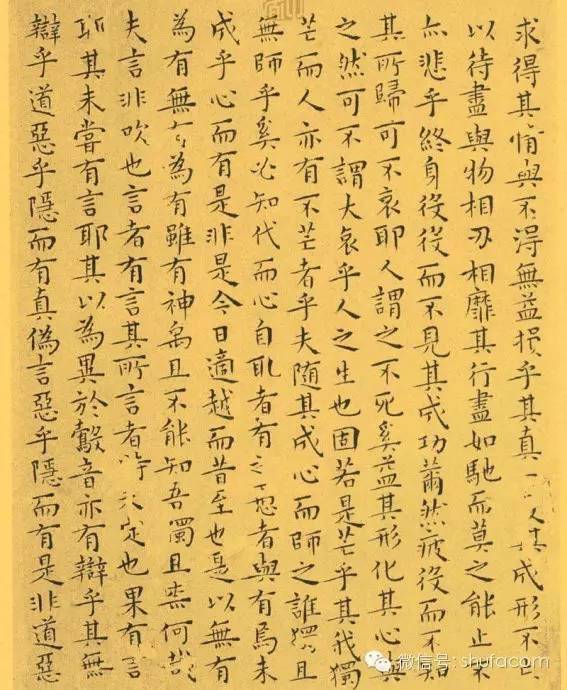 求得其情與不得無益損乎其真一其成形不
以待盡與物相刃相靡其行盡如馳而莫之能止不
亦悲乎終身役役而不見其成功薾然疲役而不知
其所歸可不哀耶人謂之不死奚益其形化其心與
之然可不謂大哀乎人之生也固若是芒乎其我獨
芒而人亦有不芒者乎夫隨其成心而師之誰獨且
無師乎奚必知代而心自取者有之愚者與有焉未
成乎心而有是非是今日適越而昔至也是以無有
為有無々為有雖有神禹且不能知吾獨且柰何哉
夫言非吹也言者有言其所言者特未定也果有言
耶其未嘗有言耶其以為異於鷇音亦有辯乎其無
辯乎道惡乎隱而有真偽言惡乎隱而有是非道惡
微信号: shufacom